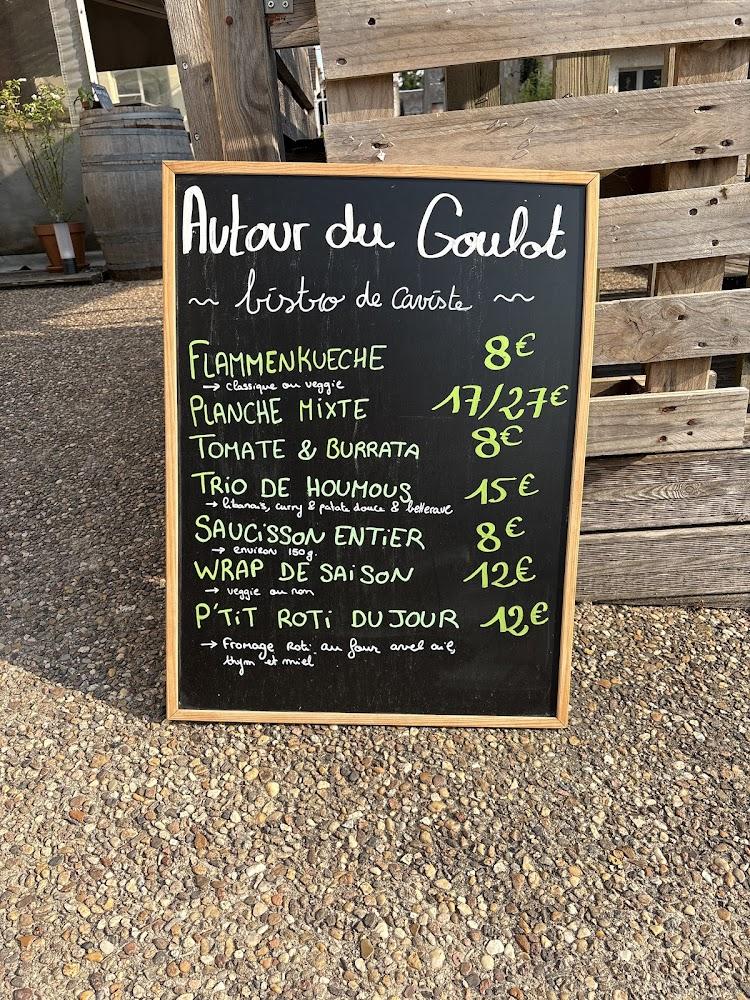 Autour du Goulot
~ bistro de caviste ~
FLAMMENKUECHE 8€
→ classique ou veggie
PLANCHE MIXTE 17/27€
TOMATE & BURRATA 8€
TRIO DE HOUMOUS 15€
→ libanais, curry & patate douce & betterave
SAUCISSON ENTIER 8€
→ environ 150g.
WRAP DE SAISON 12€
→ veggie ou non
P'TIT ROTI DU JOUR 12€
→ Fromage Roti au four avec ail,
thym et miel